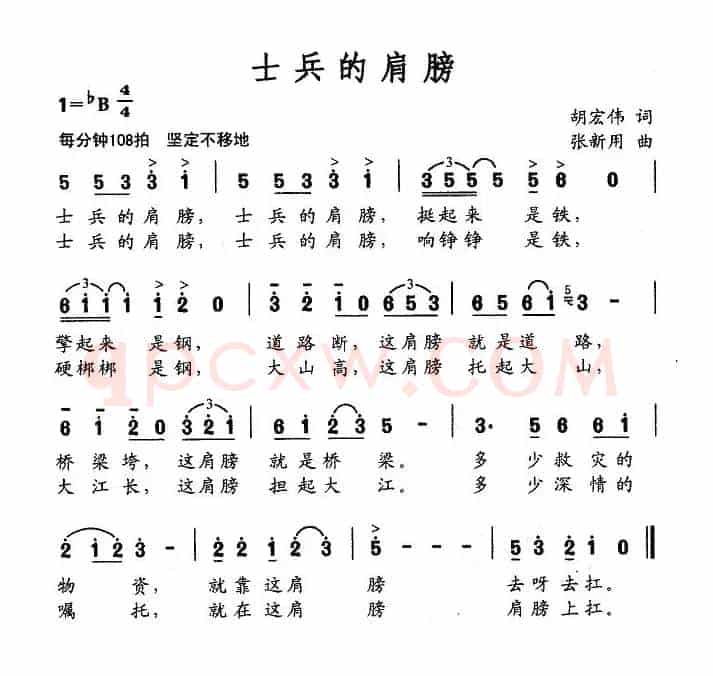 士兵的肩膀
1=♭B 4/4
胡宏伟 词
每分钟108拍 坚定不移地
张新用 曲
5 5 3 3 i | 5 5 3 3 i | 3 5 5 5 5 6 0 |
士兵的肩膀，士兵的肩膀，挺起来 是铁，
士兵的肩膀，士兵的肩膀，响铮铮 是铁，
6 i i i i 2 0 | 3 2 i 0 6 5 3 | 6 5 6 i 3 - |
擎起来 是钢， 道路断，这肩膀 就是道 路，
硬梆梆 是钢， 大山高，这肩膀 托起大 山，
qpcxw.COM
6 i 2 0 3 2 i | 6 i 2 3 5 - | 3· 5 6 6 i |
桥梁垮，这肩膀 就是桥 梁。 多 少救灾的
大江长，这肩膀 担起大 江。 多 少深情的
2 i 2 3 - | 2 2 i 2 3 | 5 - - - | 5 3 2 i 0 ‖
物 资， 就靠这肩 膀 去呀去扛。
嘱 托， 就在这肩 膀 肩膀上扛。